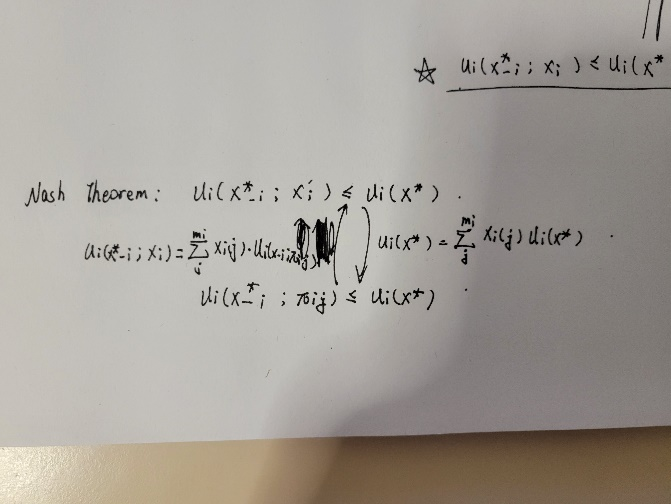 ☆ Ui(x*-i ; xi ) ≤ Ui(x*
Nash Theorem: Ui(x*-i ; xi') ≤ Ui(x*) .
Ui(x*-i ; xi) = Σ_j^mi xi(j) · Ui(x-i; πij) Ui(x*) = Σ_j^mi xi(j) Ui(x*) .
Ui(x*-i ; πij) ≤ Ui(x*) .